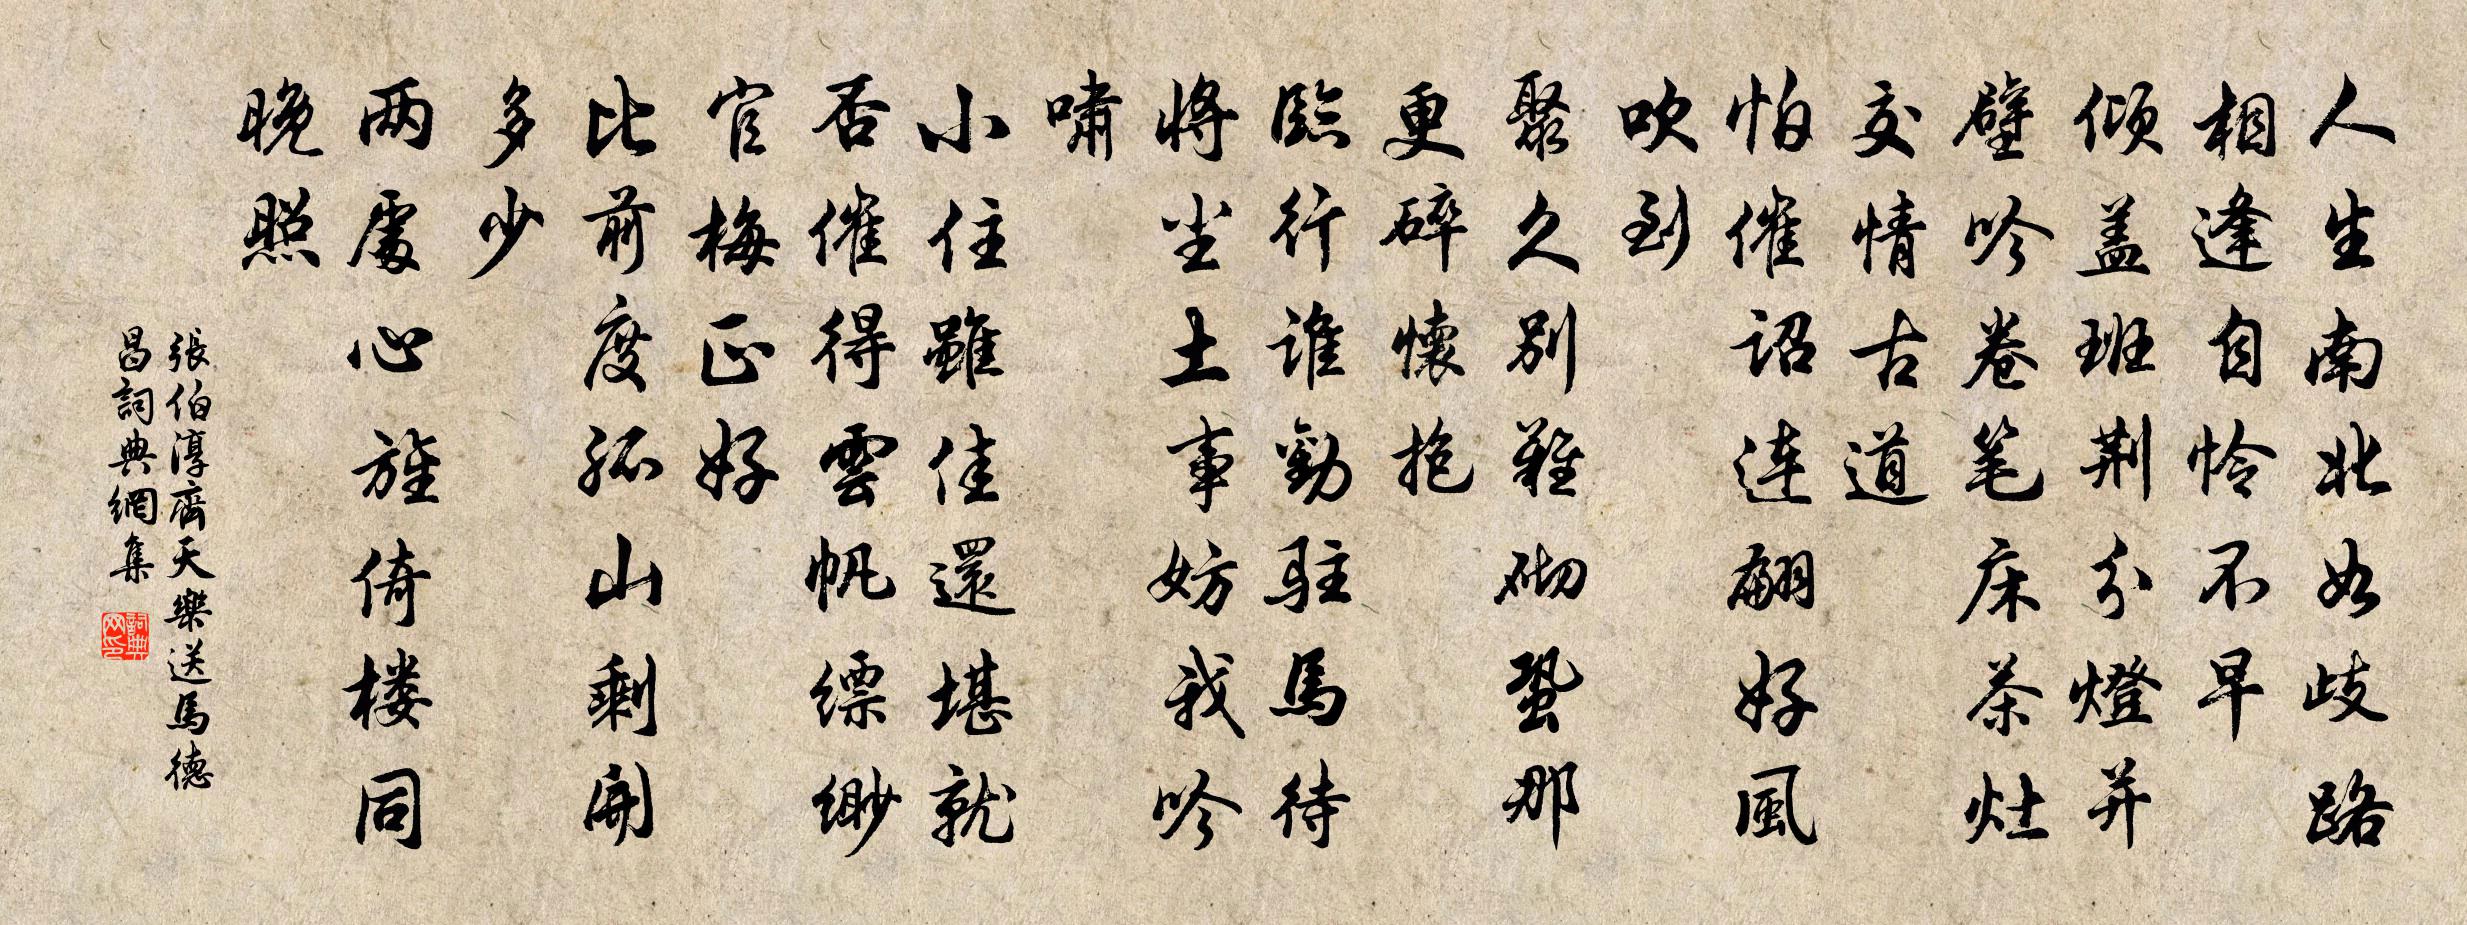 人生南北如歧路
相逢自怜不早
倾盖班荆分燈并
壁吟卷笔床茶灶
交情古道
怕催诏连翩好風
吹到
聚久别难砌蛩那
更碎懷抱
臨行谁勸驻馬待
将尘土事妨我吟
啸
小住雖佳還堪就
否催得雲帆缥缈
官梅正好
比前度孤山剩開
多少
两處心旌倚楼同
晚照
張伯淳齊天樂送馬德
昌詞典網集
詞典
网印